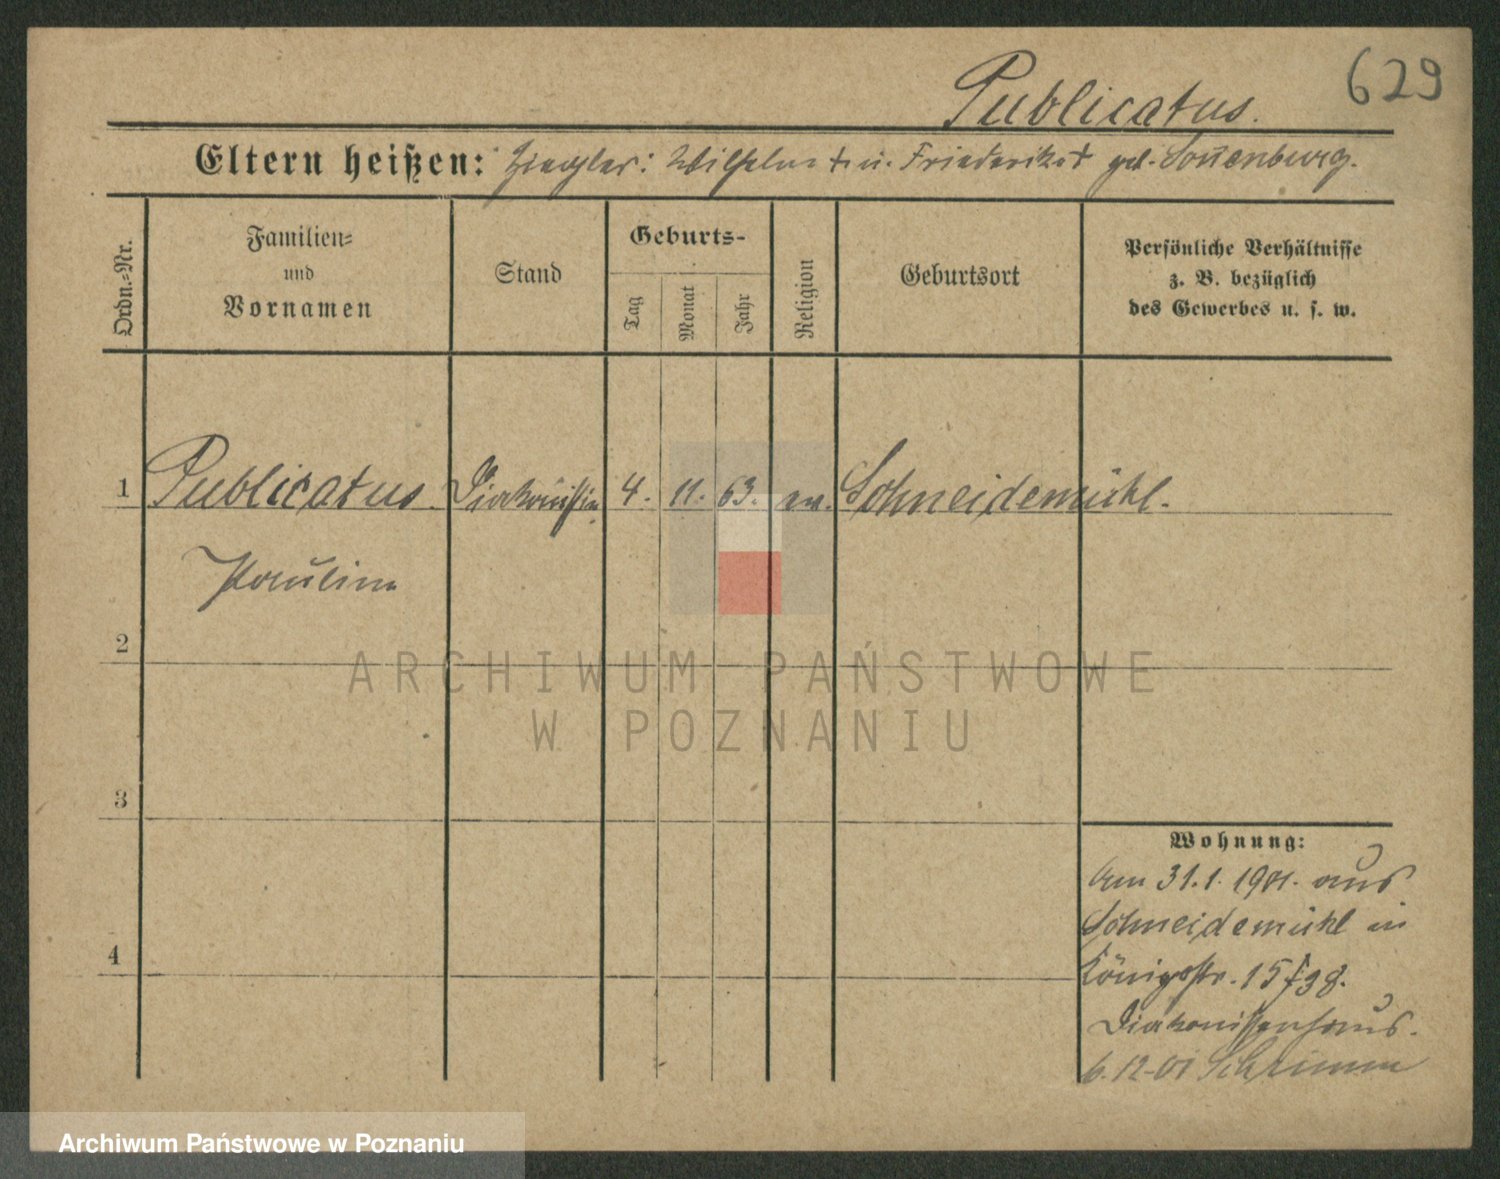 629
Publicatus.
Eltern heißen: Ziegler: Wilhelm † u. Friederike † geb. Sonnenburg.
Ordn.-Nr.
Familien-
und
Vornamen
Stand
Geburts-
Tag
Monat
Jahr
Religion
Geburtsort
Persönliche Verhältnisse
z. B. bezüglich
des Gewerbes u. s. w.
1 Publicatus. Diakonissin 4. 11. 63. ev. Schneidemühl.
Pauline
2
3
4
Wohnung:
Am 31.1.1901. aus
Schneidemühl in
Königstr. 15/38.
Diakonissenhaus.
6.12-01 Schrimm
ARCHIWUM PAŃSTWOWE
W POZNANIU
Archiwum Państwowe w Poznaniu